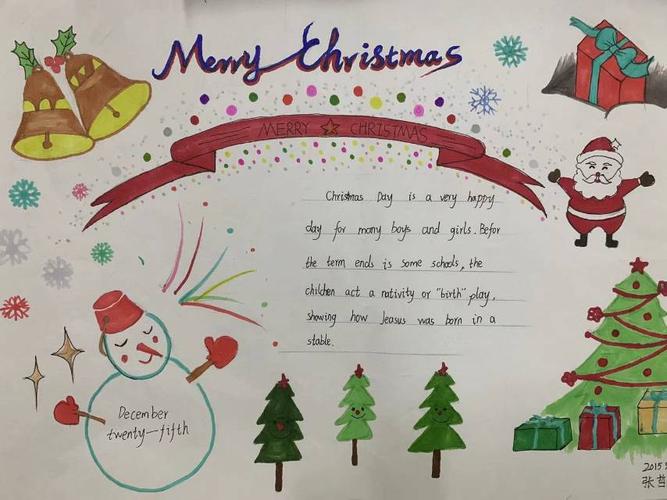 Merry Christmas
MERRY CHRISTMAS
Christmas Day is a very happy
day for many boys and girls. Befor
the term ends is some schools, the
children act a nativity or "birth" play,
showing how Jeasus was born in a
stable.
December
twenty-fifth
2015
张